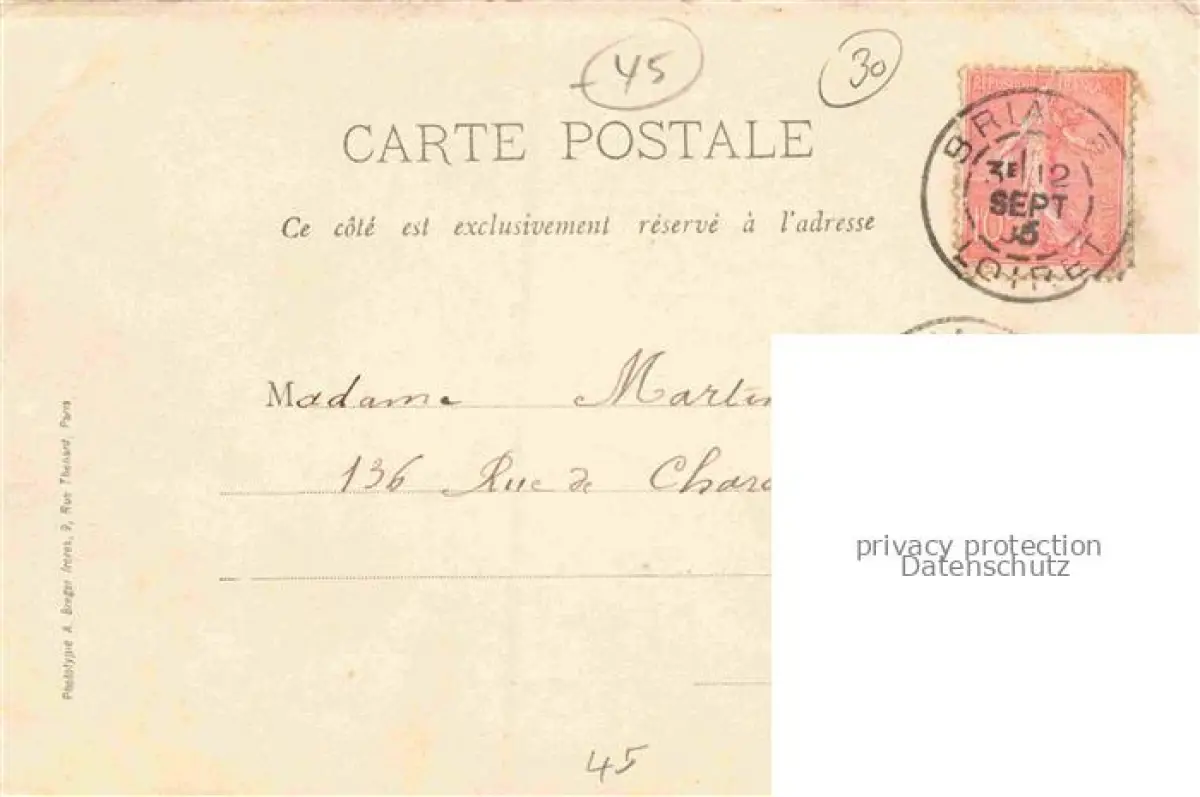 45
30
CARTE POSTALE
Ce côté est exclusivement réservé à l'adresse
BRIA
3E 12
SEPT
LOIRET
Madame Martin
136 Rue de Char
privacy protection
Datenschutz
Phototypie A. Breger frères, 9, Rue Thénard, Paris
45